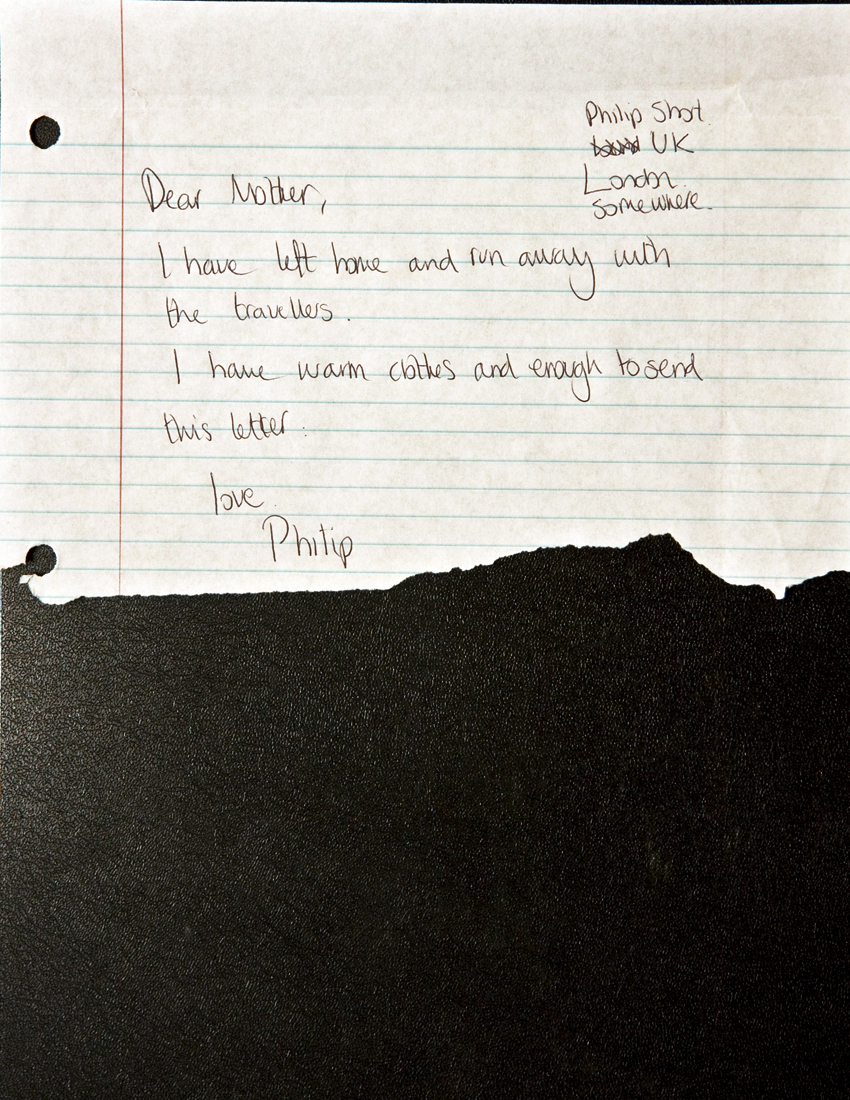 Philip Short
UK
London.
Somewhere.
Dear Mother,
I have left home and run away with
the travellers.
I have warm clothes and enough to send
this letter.
love.
Philip